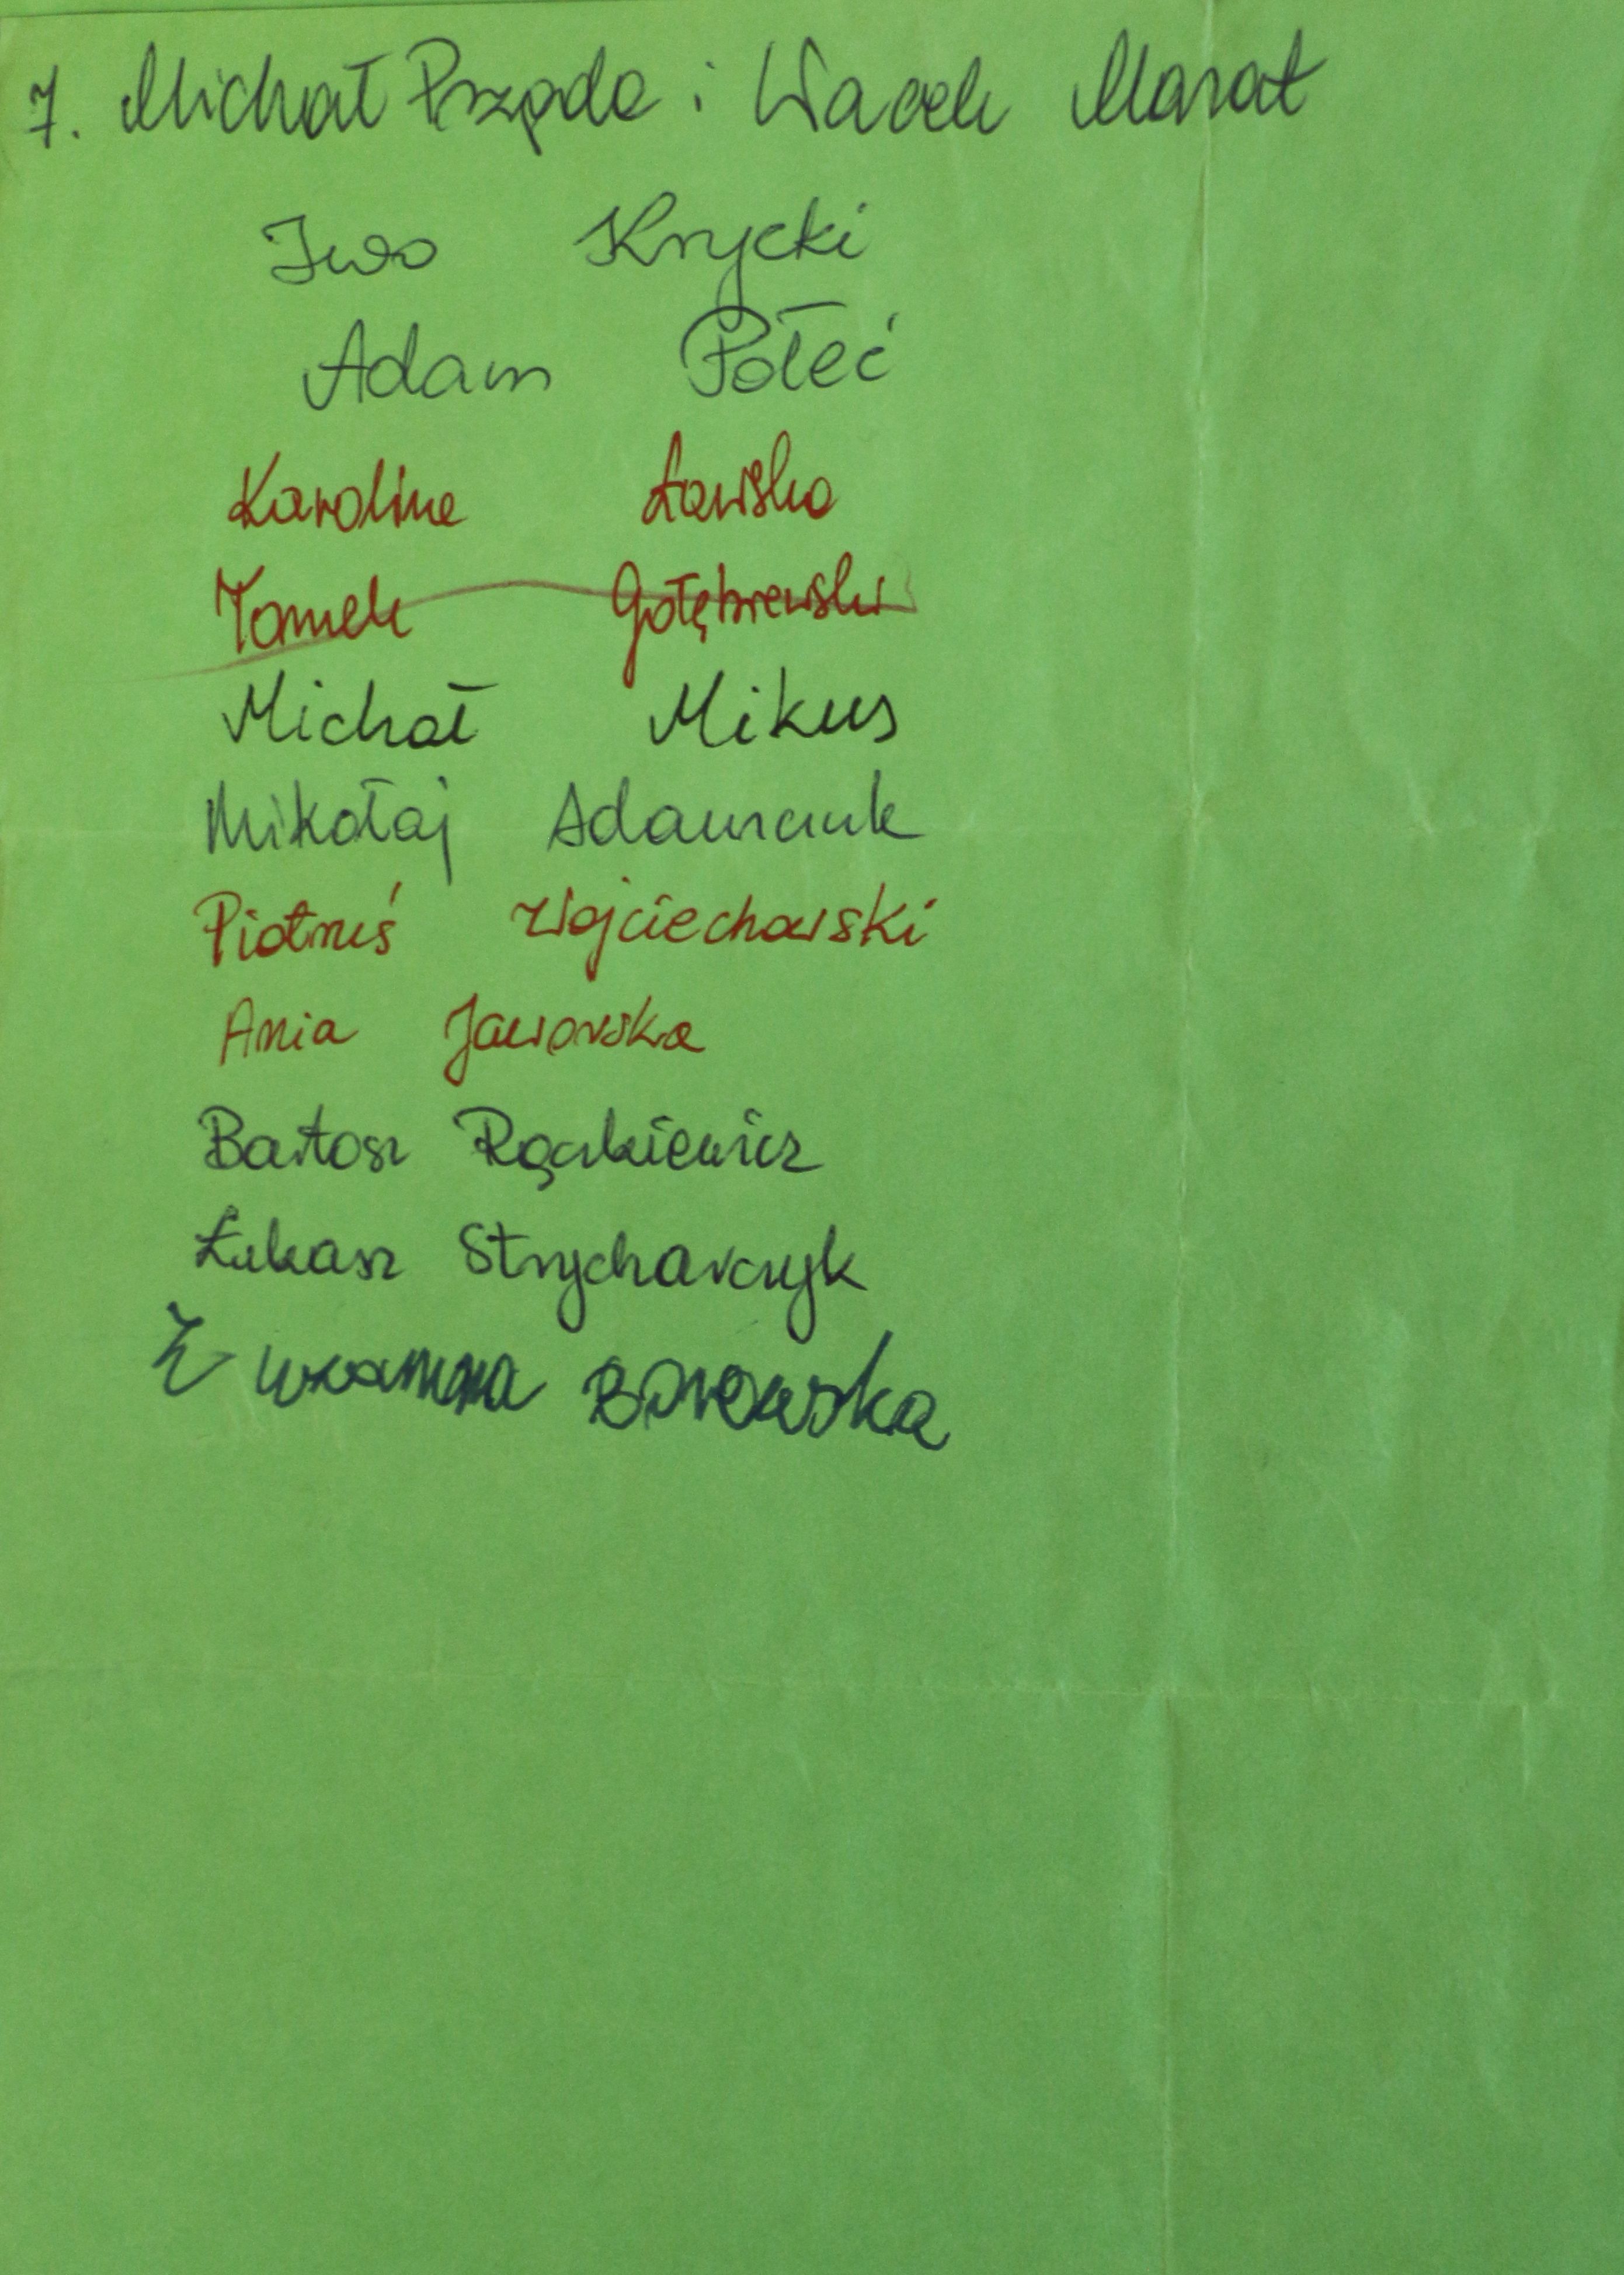 7. Michał Prządo i Wacek Marat
Iwo Krycki
Adam Połeć
Karolina Ławska
Tomek Gołębiewski
Michał Mikus
Mikołaj Adamczuk
Piotruś Wojciechowski
Ania Jaworska
Bartosz Rączkiewicz
Łukasz Strycharczyk
Zuzanna Borowska